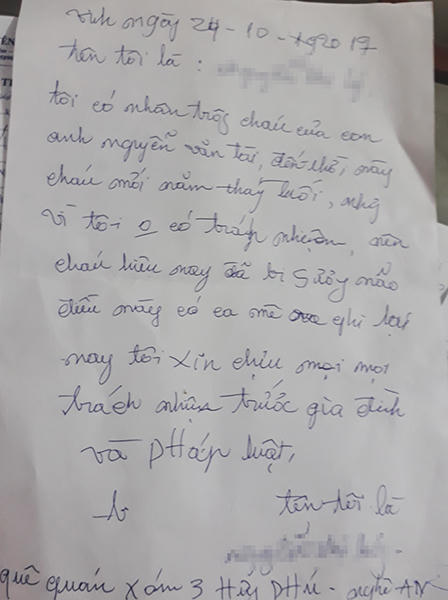 vinh ngày 24-10-2017
tên tôi là :
tôi có nhân trông cháu của con
anh nguyễn văn tài, đến thời nay
cháu mới năm tháy tuổi, nhg
vì tôi o có trách nhiệm, nên
cháu hiêu nay đã bi Sưởy não
điều này có ca mê ghi lại
nay tôi xin chịu mọi mọi
trách nhiệm trước gia đình
và PHáp luật,
tên tôi là
quê quán xóm 3 HưNg PHú - nghệ AN